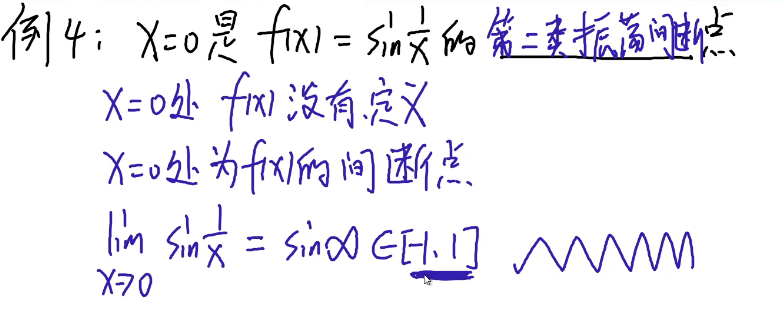 例4: x=0是 f(x) = sin 1/x 的 第二类振荡间断点
x=0处 f(x) 没有定义
x=0处 为f(x)的间断点
lim x→0 sin 1/x = sin∞ ∈[-1, 1]